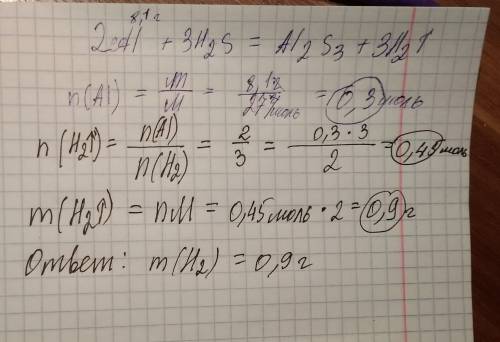 8,1 г
2Al + 3H₂S = Al₂S₃ + 3H₂↑
n(Al) = m/M = 8,1г/27г/моль = 0,3 моль
n(H₂↑) = n(Al)/n(H₂) = 2/3 = 0,3·3/2 = 0,45 моль
m(H₂↑) = nM = 0,45 моль · 2 = 0,9 г
Ответ: m(H₂) = 0,9 г